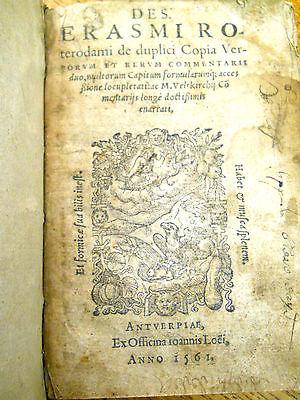 DES.
ERASMI RO-
terodami de duplici Copia Ver-
BORVM ET RERVM COMMENTARII
duo, multorum Capitum formularumq; acces
sione locupletati: ac M. Veltkirchij Cō
mentarijs longè doctissimis
enarrati,
Et formicæ sua bilis inest.
Habet & musca splenem.
ANTVERPIAE,
Ex Officina Ioannis Loëi,
ANNO 1561.